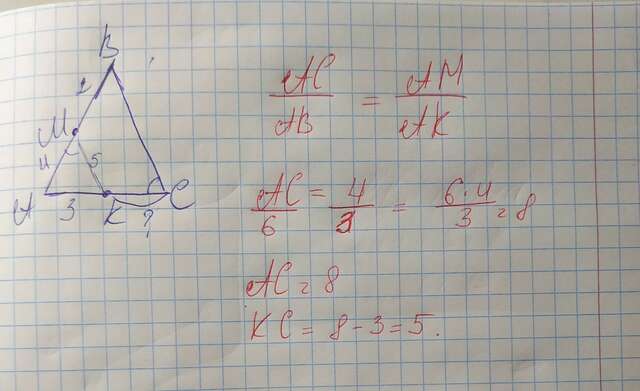 B
2
M
4
5
A
3
K
?
C
AC/AB = AM/AK
AC/6 = 4/3 = 6·4/3 = 8
AC = 8
KC = 8 - 3 = 5.